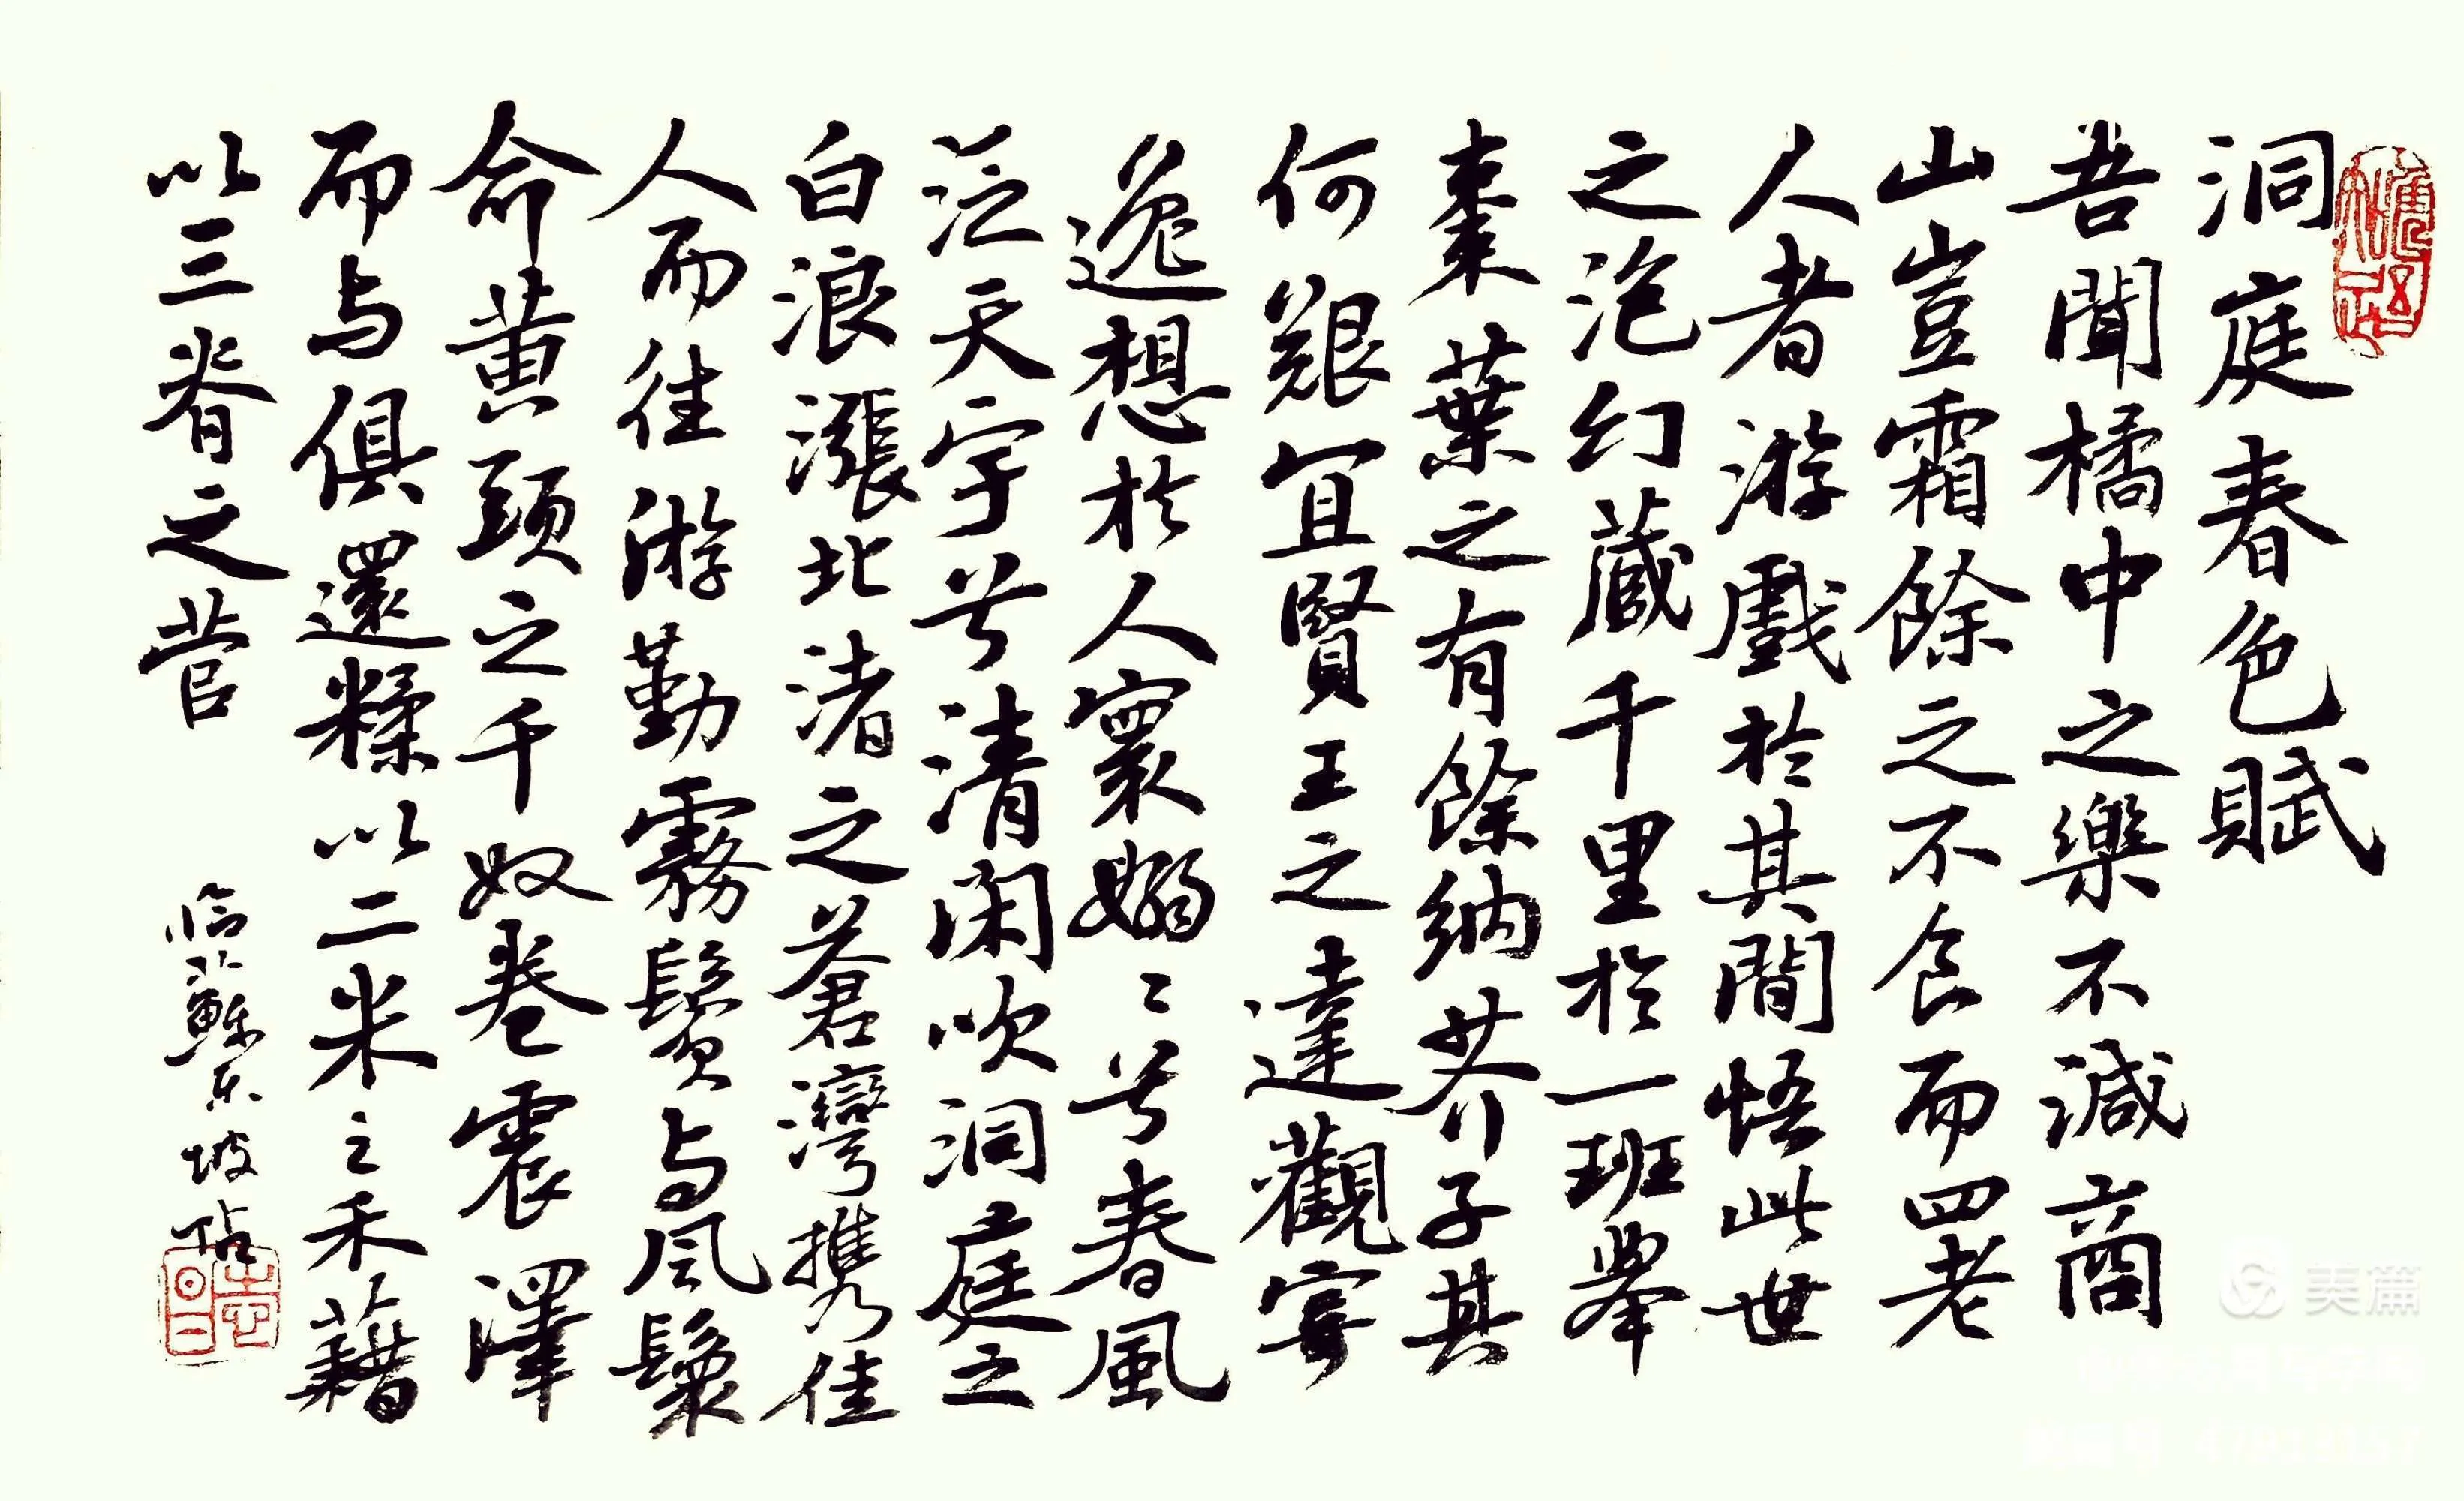 洞庭春色賦
吾聞橘中之樂不減商
山豈霜餘之不食而四老
人者游戲於其間悟此世
之泡幻藏千里於一班舉
棗葉之有餘納芥子其
何艱宜賢王之達觀寄
逸想於人寰嫋〻兮春風
泛天宇兮清閑吹洞庭之
白浪漲北渚之蒼灣携佳
人而往游勤霧鬢与風鬟
命黄頭之千奴卷震澤
而与俱還糅以二米之禾藉
以三脊之菅
臨蘇东坡帖
美篇